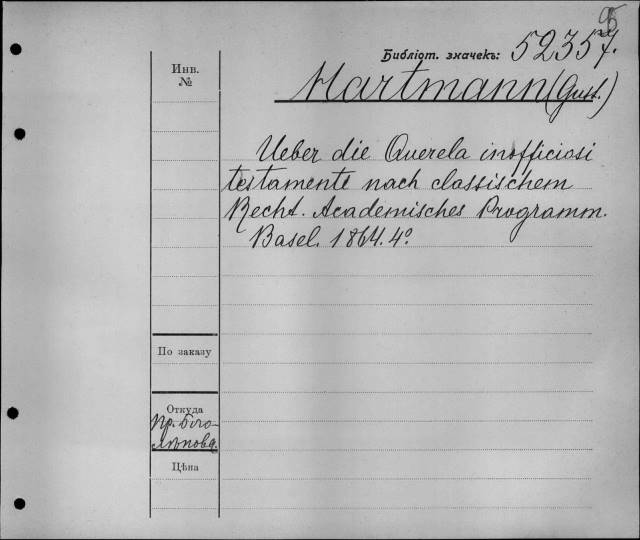 Библіот. значекъ: 52357.
Инв. №
Hartmann (Gust.)
Ueber die Querela inofficiosi
testamente nach classischem
Recht. Academisches Programm.
Basel. 1864. 4°.
По заказу
Откуда
Пр. Бѣло-
Цѣна